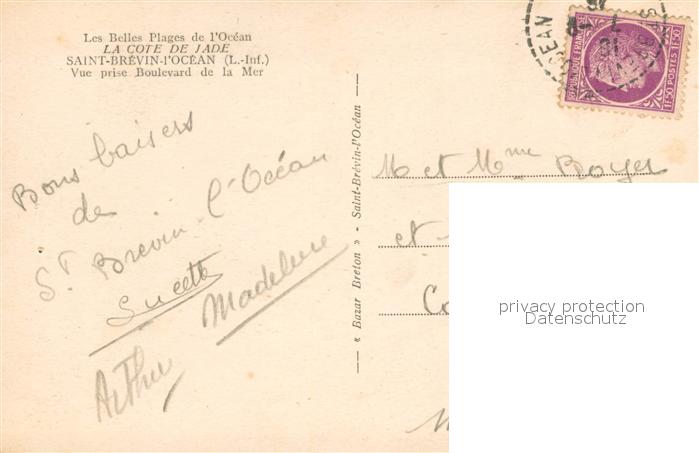 Les Belles Plages de l'Océan
LA COTE DE JADE
SAINT-BRÉVIN-l'OCÉAN (L.-Inf.)
Vue prise Boulevard de la Mer
Bons baisers
de
St Brevin l'Océan
Lucette
Madeleine
Arthur
« Bazar Breton » - Saint-Brévin-l'Océan
RÉPUBLIQUE FRANÇAISE
1F50 POSTES 1F50
M et Mme Royer
et
privacy protection
Datenschutz